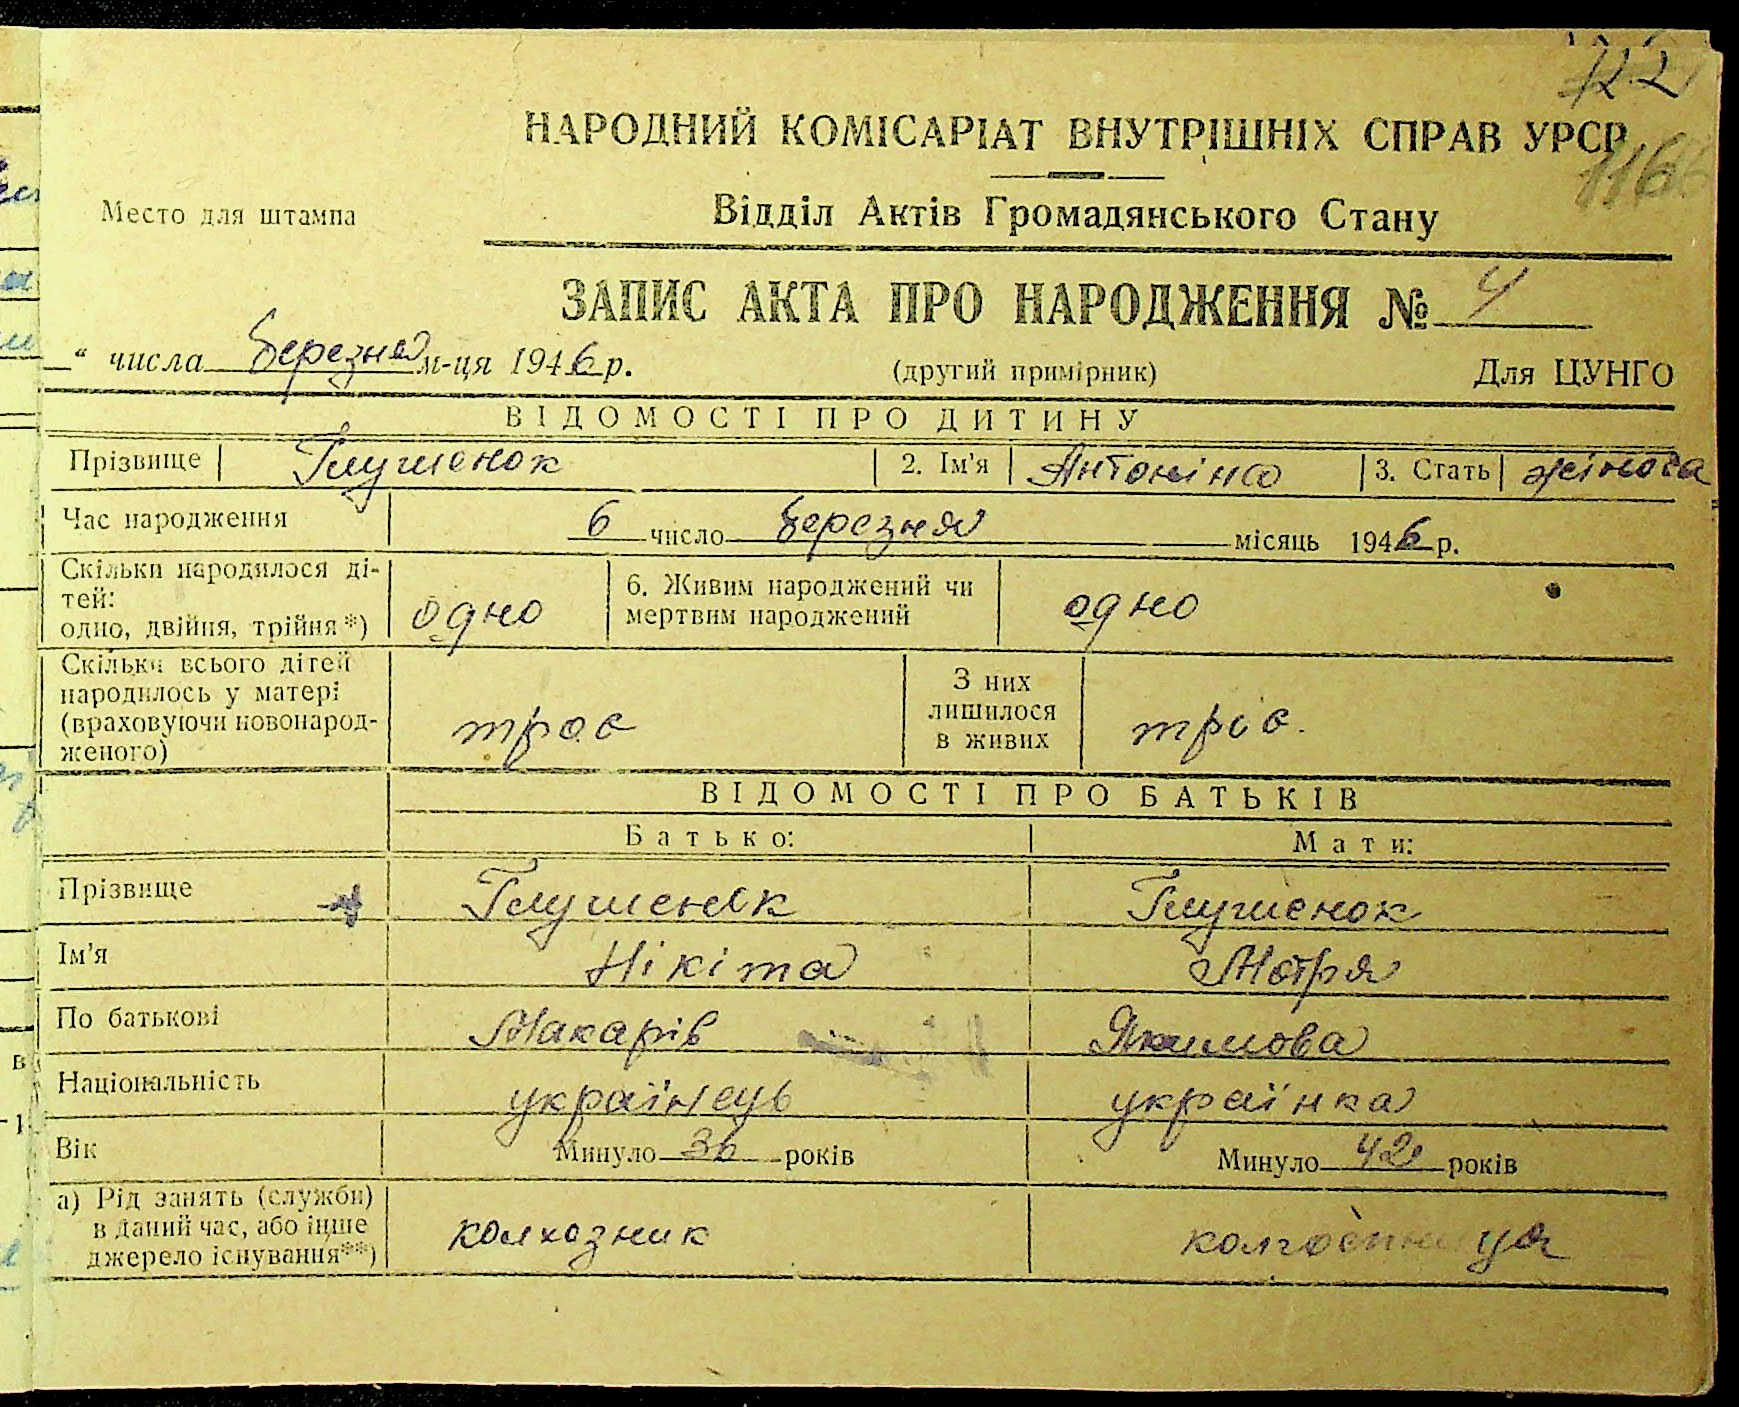 122
1166
НАРОДНИЙ КОМІСАРІАТ ВНУТРІШНІХ СПРАВ УРСР
Место для штампа
Відділ Актів Громадянського Стану
ЗАПИС АКТА ПРО НАРОДЖЕННЯ № 4
“ числа березня м-ця 1946 р. (другий примірник) Для ЦУНГО
ВІДОМОСТІ ПРО ДИТИНУ
Прізвище Глушенок 2. Ім'я Антоніна 3. Стать жіноча
Час народження 6 число березня місяць 1946 р.
Скільки народилося ді-
тей:
одно, двійня, трійня*) одно
6. Живим народжений чи
мертвим народжений одно
Скільки всього дітей
народилось у матері
(враховуючи новонарод-
женого) троє
З них
лишилося
в живих троє.
ВІДОМОСТІ ПРО БАТЬКІВ
Батько: Мати:
Прізвище Глушенок Глушенок
Ім'я Нікіта Мотря
По батькові Макарів Якимова
Національність українець українка
Вік Минуло 36 років Минуло 42 років
а) Рід занять (служби)
в даний час, або інше
джерело існування**) колхозник колгоспниця